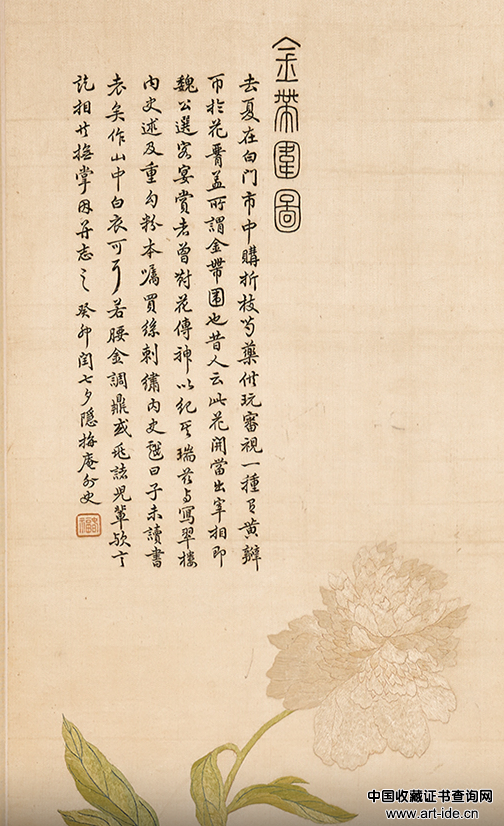 金帶圍圖
去夏在白門市中購折枝芍藥供玩審視一種有黃瓣
帀於花脣蓋所謂金帶圍也昔人云此花開當出宰相即
魏公選客宴賞者曾對花傳神以紀其瑞茲與寫翠樓
內史述及重勾粉本囑買絲刺繡內史戲曰子未讀書
老矣作山中白衣可耳若腰金調鼎或兆諸兒輩歟言
訖相共撫掌因并志之 癸卯閏七夕隱梅庵外史
中国收藏证书查询网
www.art-ide.cn